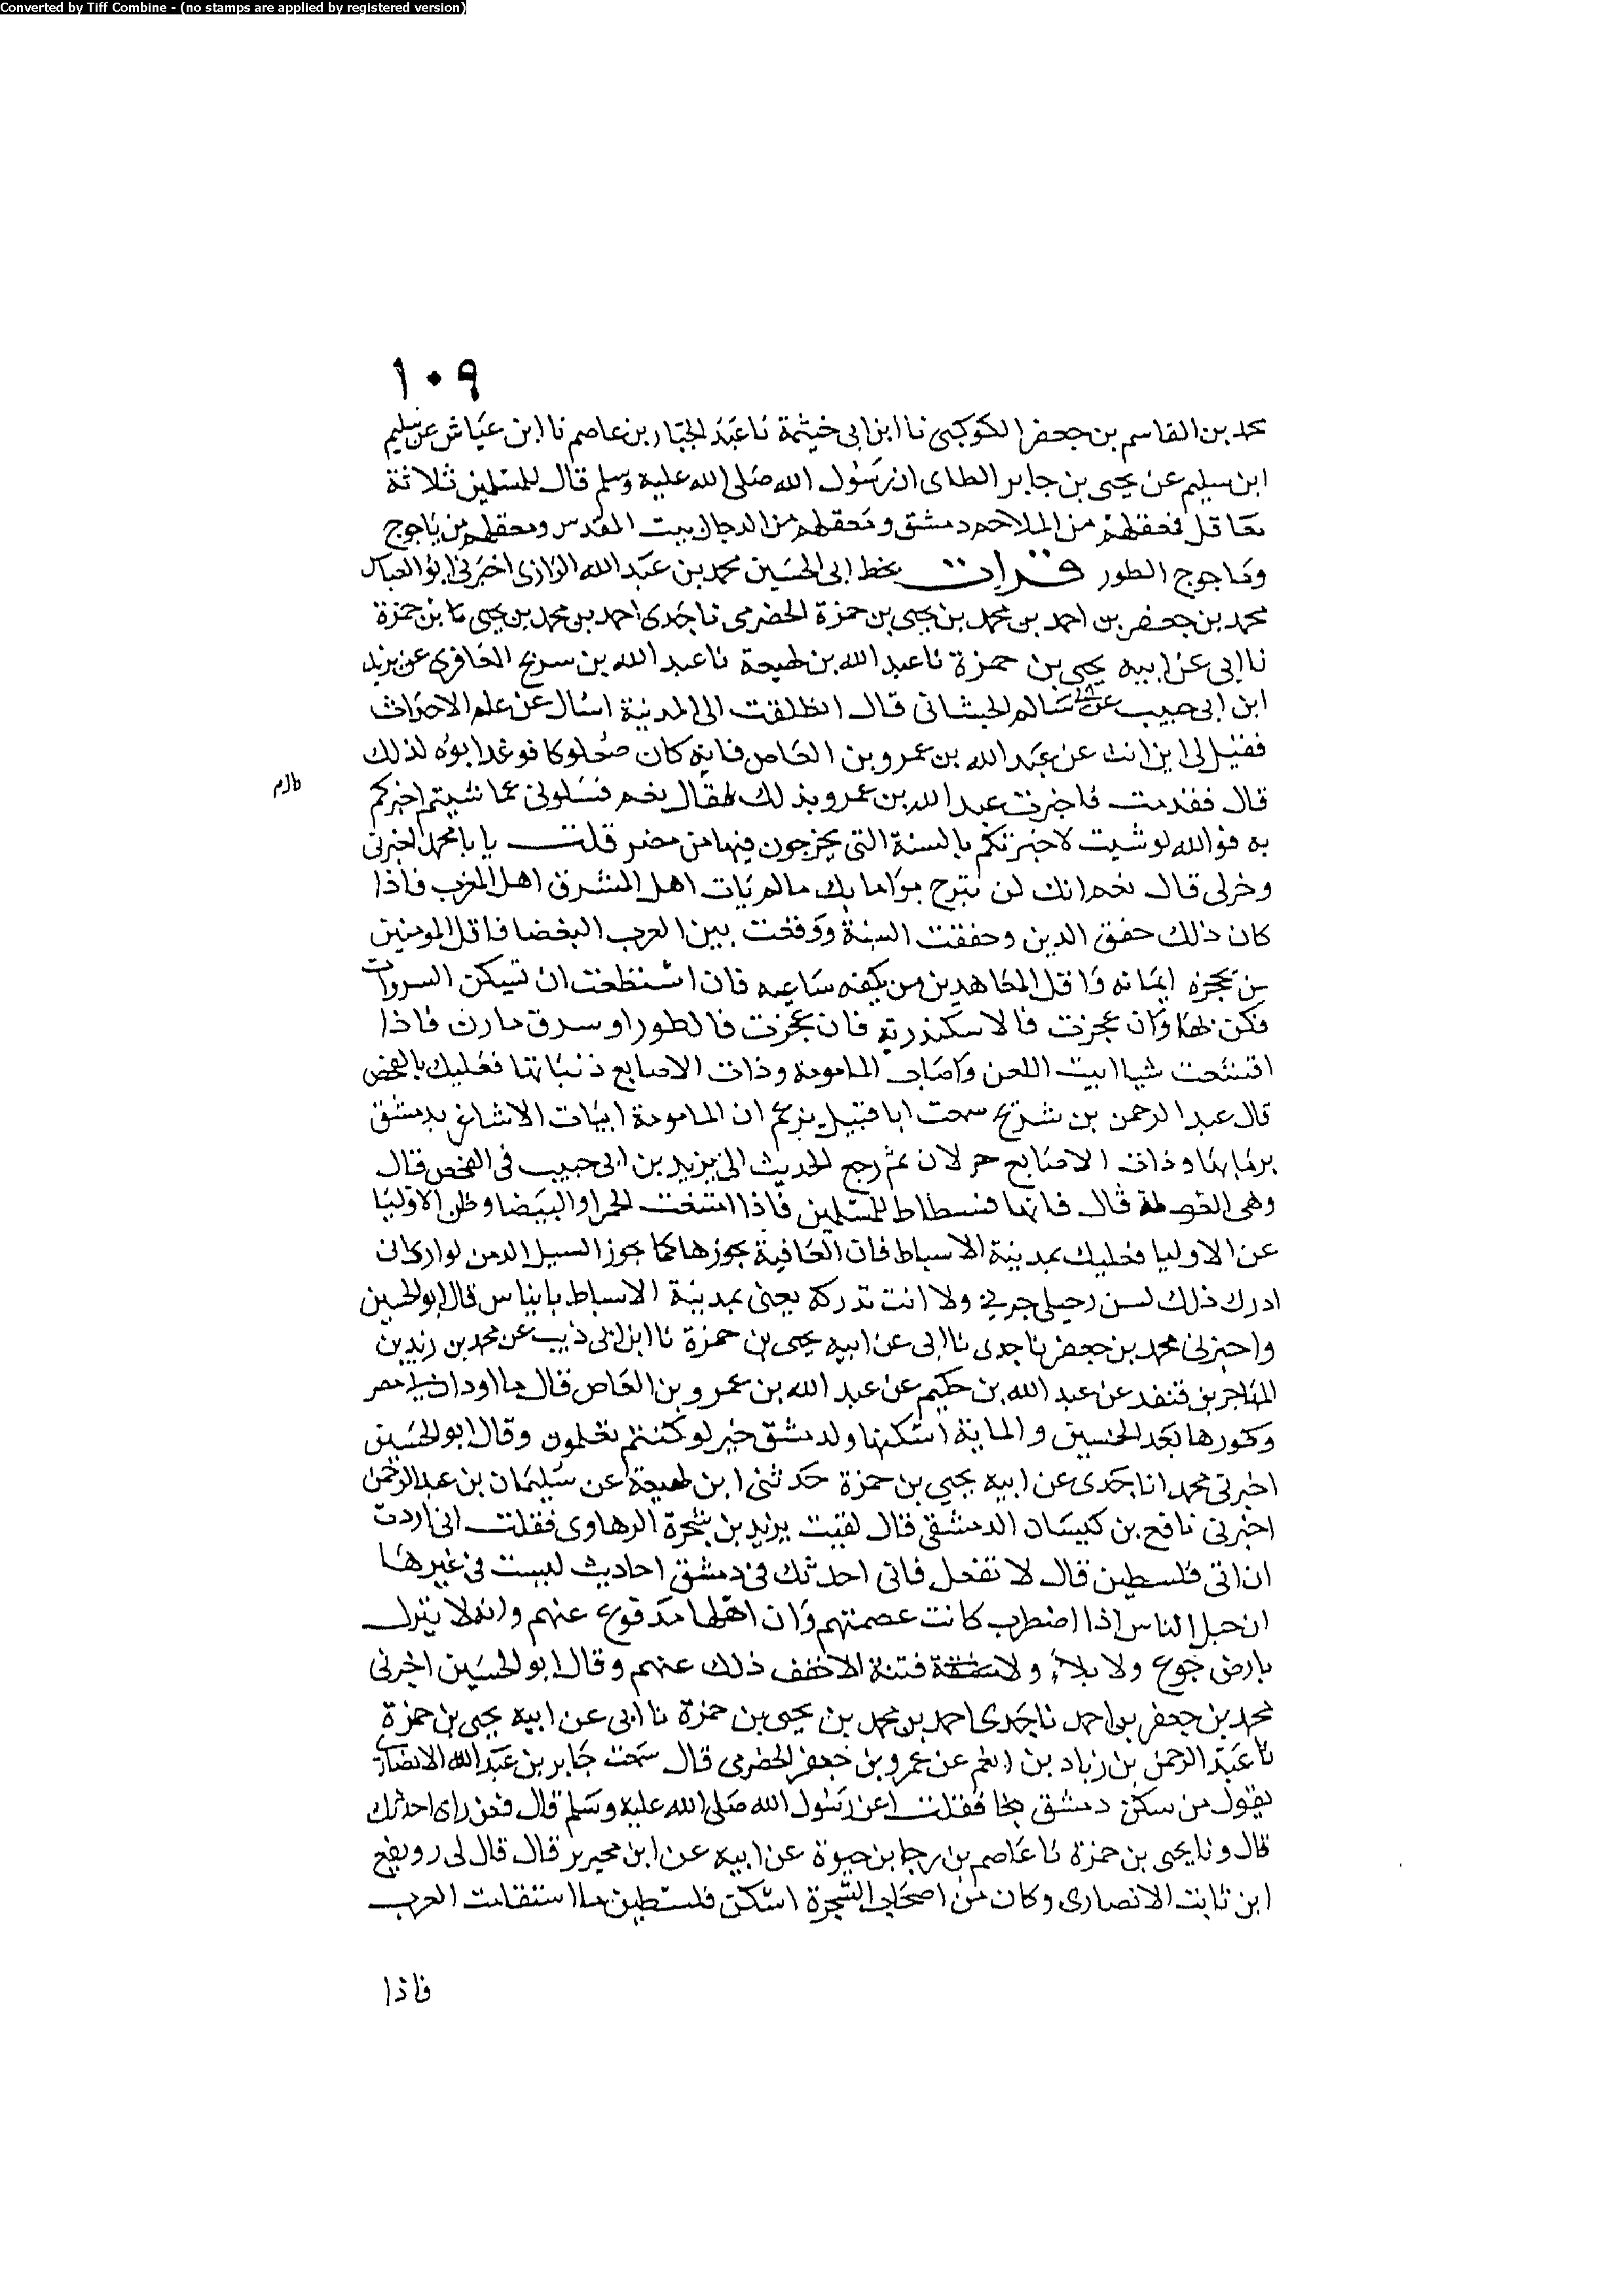 Converted by Tiff Combine - (no stamps are applied by registered version)
١٠٩
محمد بن القاسم بن جعفر الكوكبى نا ابن ابى خيثمة نا عبد الجبار بن عاصم نا ابن عياش عن سليم
ابن سليم عن يحيى بن جابر الطاى ان رسول الله صلى الله عليه وسلم قال للمسلمين ثلاثة
معاقل فمعقلهم من الملاحم دمشق ومعقلهم من الدجال بيت المقدس ومعقلهم من ياجوج
وماجوج الطور قرات بخط ابى الحسين محمد بن عبد الله الرازى اخبرنى ابو العباس
محمد بن جعفر بن احمد بن محمد بن يحيى بن حمزة الحضرمى نا جدى احمد بن محمد بن يحيى بن حمزة
نا ابى عن ابيه يحيى بن حمزة نا عبد الله بن لهيعة نا عبد الله بن سريح المعافرى عن يزيد
ابن ابى حبيب عن ابى سالم الجيشانى قال انطلقت الى المدينة اسال عن علم الاحداث
فقيل لى اين انت عن عبد الله بن عمرو بن العاص فانه كان صعلوكا فوغدا ابوه لذلك
قال فقدمت فاخبرت عبد الله بن عمرو بذلك فقال نعم فسلونى عما شيتم اخبركم
به فوالله لو شيت لاخبرتكم بالسنة التى يخرجون فيها من مصر قلت يا با محمد اخبرنى
وخر لى قال نعم انك لن تبرح مواما بك مالم يات اهل المشرق اهل المغرب فاذا
كان ذلك حفق الدين وحفقت السنة ووقعت بين العرب البغضا فاقل المومنين
من يحجزه ايمانه واقل المجاهدين من يكفه ساعيه فان استطعت ان تسكن السروات
فكن بها وان عجزت فالاسكندرية فان عجزت فالطور او سرق مارن فاذا
افتتحت شيا ابيت اللعن واصاب المامومة وذات الاصابع ذنباتها فعليك بالفحص
قال عبد الرحمن بن شريح سمعت ابا قبيل يزعم ان المامومة ابيات الاشاعر بدمشق
وذات الاصابع حرلان ثم رجع الحديث الى يزيد بن ابى حبيب فى الفحص قال
وهى الغوطة قال فانها فسطاط المسلمين فاذا امتنعت الحمرا والبيضا وظن الاوليا
عن الاوليا فعليك بمدينة الاسباط فان العافية يجوزها كما جوز السيل الدمن لو اركانى
ادرك ذلك لسن رحيلى ولا انت تدركه يعنى بمدينة الاسباط بانياس قال ابو الحسين
واخبرنى محمد بن جعفر نا جدى نا ابى عن ابيه يحيى بن حمزة نا ابن ابى ذيب عن محمد بن زيد بن
المهاجر بن قنفد عن عبد الله بن حكيم عن عبد الله بن عمرو بن العاص قال ما اود ان لى مصر
وكورها بعد الخمسين والماية اسكنها ولدمشق خير لو كنتم تعلمون وقال ابو الحسين
اخبرنى محمد انا جدى عن ابيه يحيى بن حمزة حدثنى ابن لهيعة عن سليمان بن عبد الرحمن
اخبرنى نافع بن كيسان الدمشقى قال لقيت يزيد بن شجرة الرهاوى فقلت انى اردت
ان اتى فلسطين قال لا تفعل فانى احدثك فى دمشق احاديث ليست فى غيرها
ان حبل الناس اذا اضطرب كانت عصمتهم وان اهلها مدفوع عنهم وانه لا ينزل
بارض جوع ولا بلا ولا فتنة الا خفف ذلك عنهم وقال ابو الحسين اخبرنى
محمد بن جعفر بن احمد نا جدى احمد بن محمد بن يحيى بن حمزة نا ابى عن ابيه يحيى بن حمزة
نا عبد الرحمن بن زياد بن انعم عن عمرو بن جعفر الحضرمى قال سمعت جابر بن عبد الله الانصارى
يقول من سكن دمشق نجا فقلت اعن رسول الله صلى الله عليه وسلم قال فعن راى احدثك
قال ونا يحيى بن حمزة نا عاصم بن رجا بن حيوة عن ابيه عن ابن محيريز قال قال لى رويفع
ابن ثابت الانصارى وكان من اصحاب الشجرة اسكن فلسطين ما استقامت العرب
فاذا